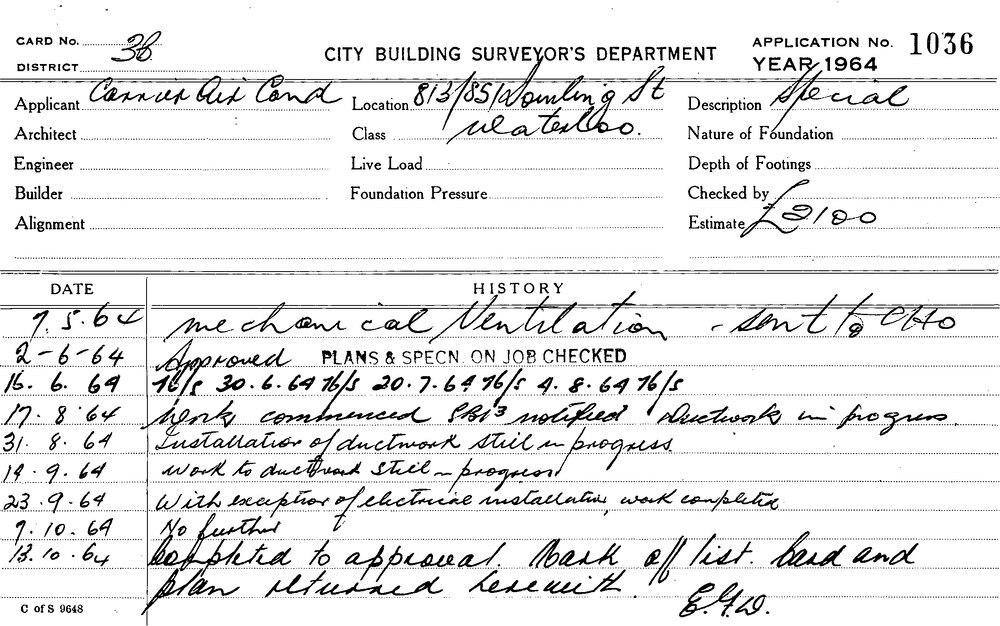 CARD No. 3B
DISTRICT
CITY BUILDING SURVEYOR'S DEPARTMENT
APPLICATION No. 1036
YEAR 1964
Applicant Carrier Air Cond Location 813/851 Dowling St Description Special
Architect Class Waterloo. Nature of Foundation
Engineer Live Load Depth of Footings
Builder Foundation Pressure Checked by
Alignment Estimate £2100
DATE HISTORY
7.5.64 Mechanical Ventilation - sent to CHO
2-6-64 Approved PLANS & SPECN. ON JOB CHECKED
16.6.64 N/S 30.6.64 N/S 20.7.64 N/S 4.8.64 N/S
17.8.64 Work commenced notified Ductwork in progress.
31.8.64 Installation of ductwork still in progress.
14.9.64 Work to ductwork still in progress
23.9.64 With exception of electrical installation, work completed
7.10.64 No further
13.10.64 Completed to approval. Mark off list. Card and
plan returned herewith.
E.G.D.
C of S 9648